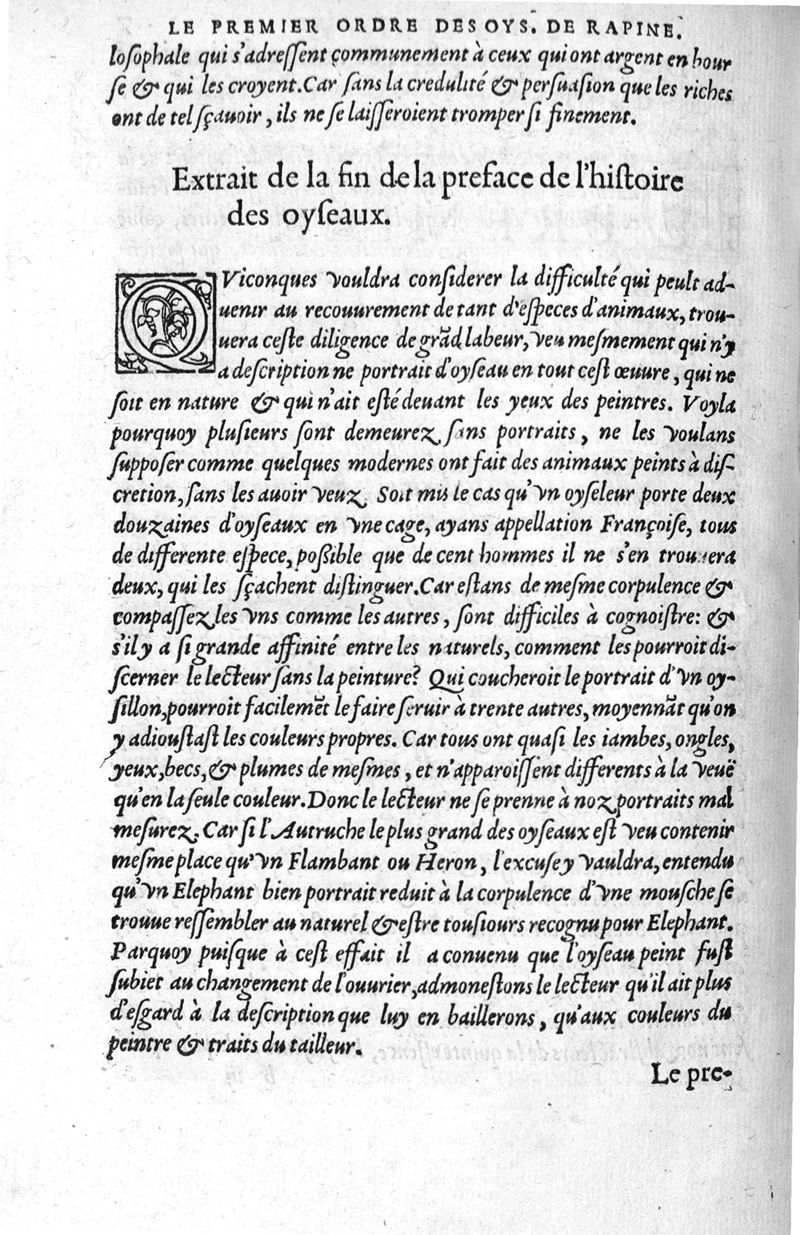 LE PREMIER ORDRE DES OYS. DE RAPINE.
loſophale qui s'adreſſent communement à ceux qui ont argent en bour
ſe & qui les croyent. Car ſans la credulité & perſuaſion que les riches
ont de tel ſçauoir, ils ne ſe laiſſeroient tromper ſi finement.
Extrait de la fin de la preface de l'hiſtoire
des oyſeaux.
QViconques vouldra conſiderer la difficulté qui peult ad-
uenir au recouurement de tant d'eſpeces d'animaux, trou-
uera ceſte diligence de grãd labeur, veu meſmement qui n'y
a deſcription ne portrait d'oyſeau en tout ceſt œuure, qui ne
ſoit en nature & qui n'ait eſté deuant les yeux des peintres. Voyla
pourquoy pluſieurs ſont demeurez ſans portraits, ne les voulans
ſuppoſer comme quelques modernes ont fait des animaux peints à diſ-
cretion, ſans les auoir veuz. Soit mis le cas qu'vn oyſeleur porte deux
douzaines d'oyſeaux en vne cage, ayans appellation Françoiſe, tous
de differente eſpece, poßible que de cent hommes il ne s'en trouuera
deux, qui les ſçachent diſtinguer. Car eſtans de meſme corpulence &
compaſſez les vns comme les autres, ſont difficiles à cognoiſtre: &
s'il y a ſi grande affinité entre les naturels, comment les pourroit di-
ſcerner le lecteur ſans la peinture? Qui coucheroit le portrait d'vn oy-
ſillon, pourroit facilemẽt le faire ſeruir à trente autres, moyennãt qu'on
y adiouſtaſt les couleurs propres. Car tous ont quaſi les iambes, ongles,
yeux, becs, & plumes de meſmes, et n'apparoiſſent differents à la veuë
qu'en la ſeule couleur. Donc le lecteur ne ſe prenne à noz portraits mal
meſurez. Car ſi l'Autruche le plus grand des oyſeaux eſt veu contenir
meſme place qu'vn Flambant ou Heron, l'excuſe y vauldra, entendu
qu'vn Elephant bien portrait reduit à la corpulence d'vne mouſche ſe
trouue reſſembler au naturel & eſtre touſiours recognu pour Elephant.
Parquoy puiſque à ceſt effait il a conuenu que l'oyſeau peint fuſt
ſubiet au changement de l'ouurier, admoneſtons le lecteur qu'il ait plus
d'eſgard à la deſcription que luy en baillerons, qu'aux couleurs du
peintre & traits du tailleur.
Le pre-